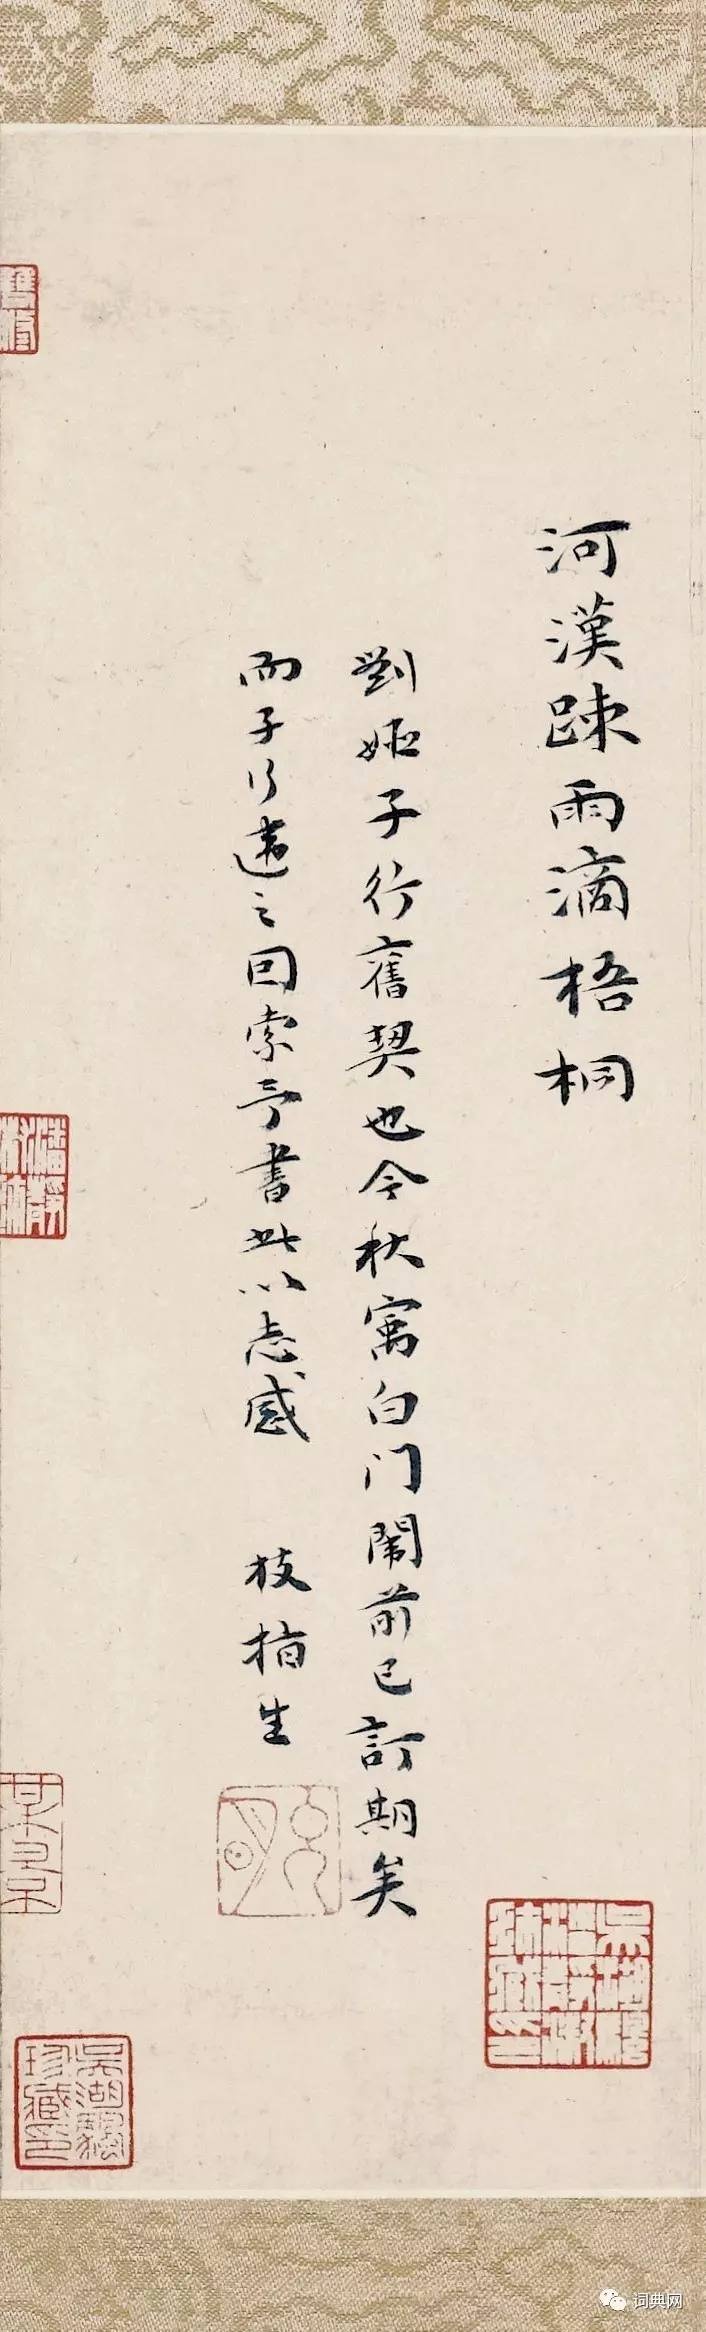 河漢踈雨滴梧桐
劉姬子行舊契也今秋寓白门闈前已訂期矣
而子行遠之回索予書此以志感
枝指生
吳湖颿珍藏印
吳湖颿潘靜淑珍藏印
詞典网